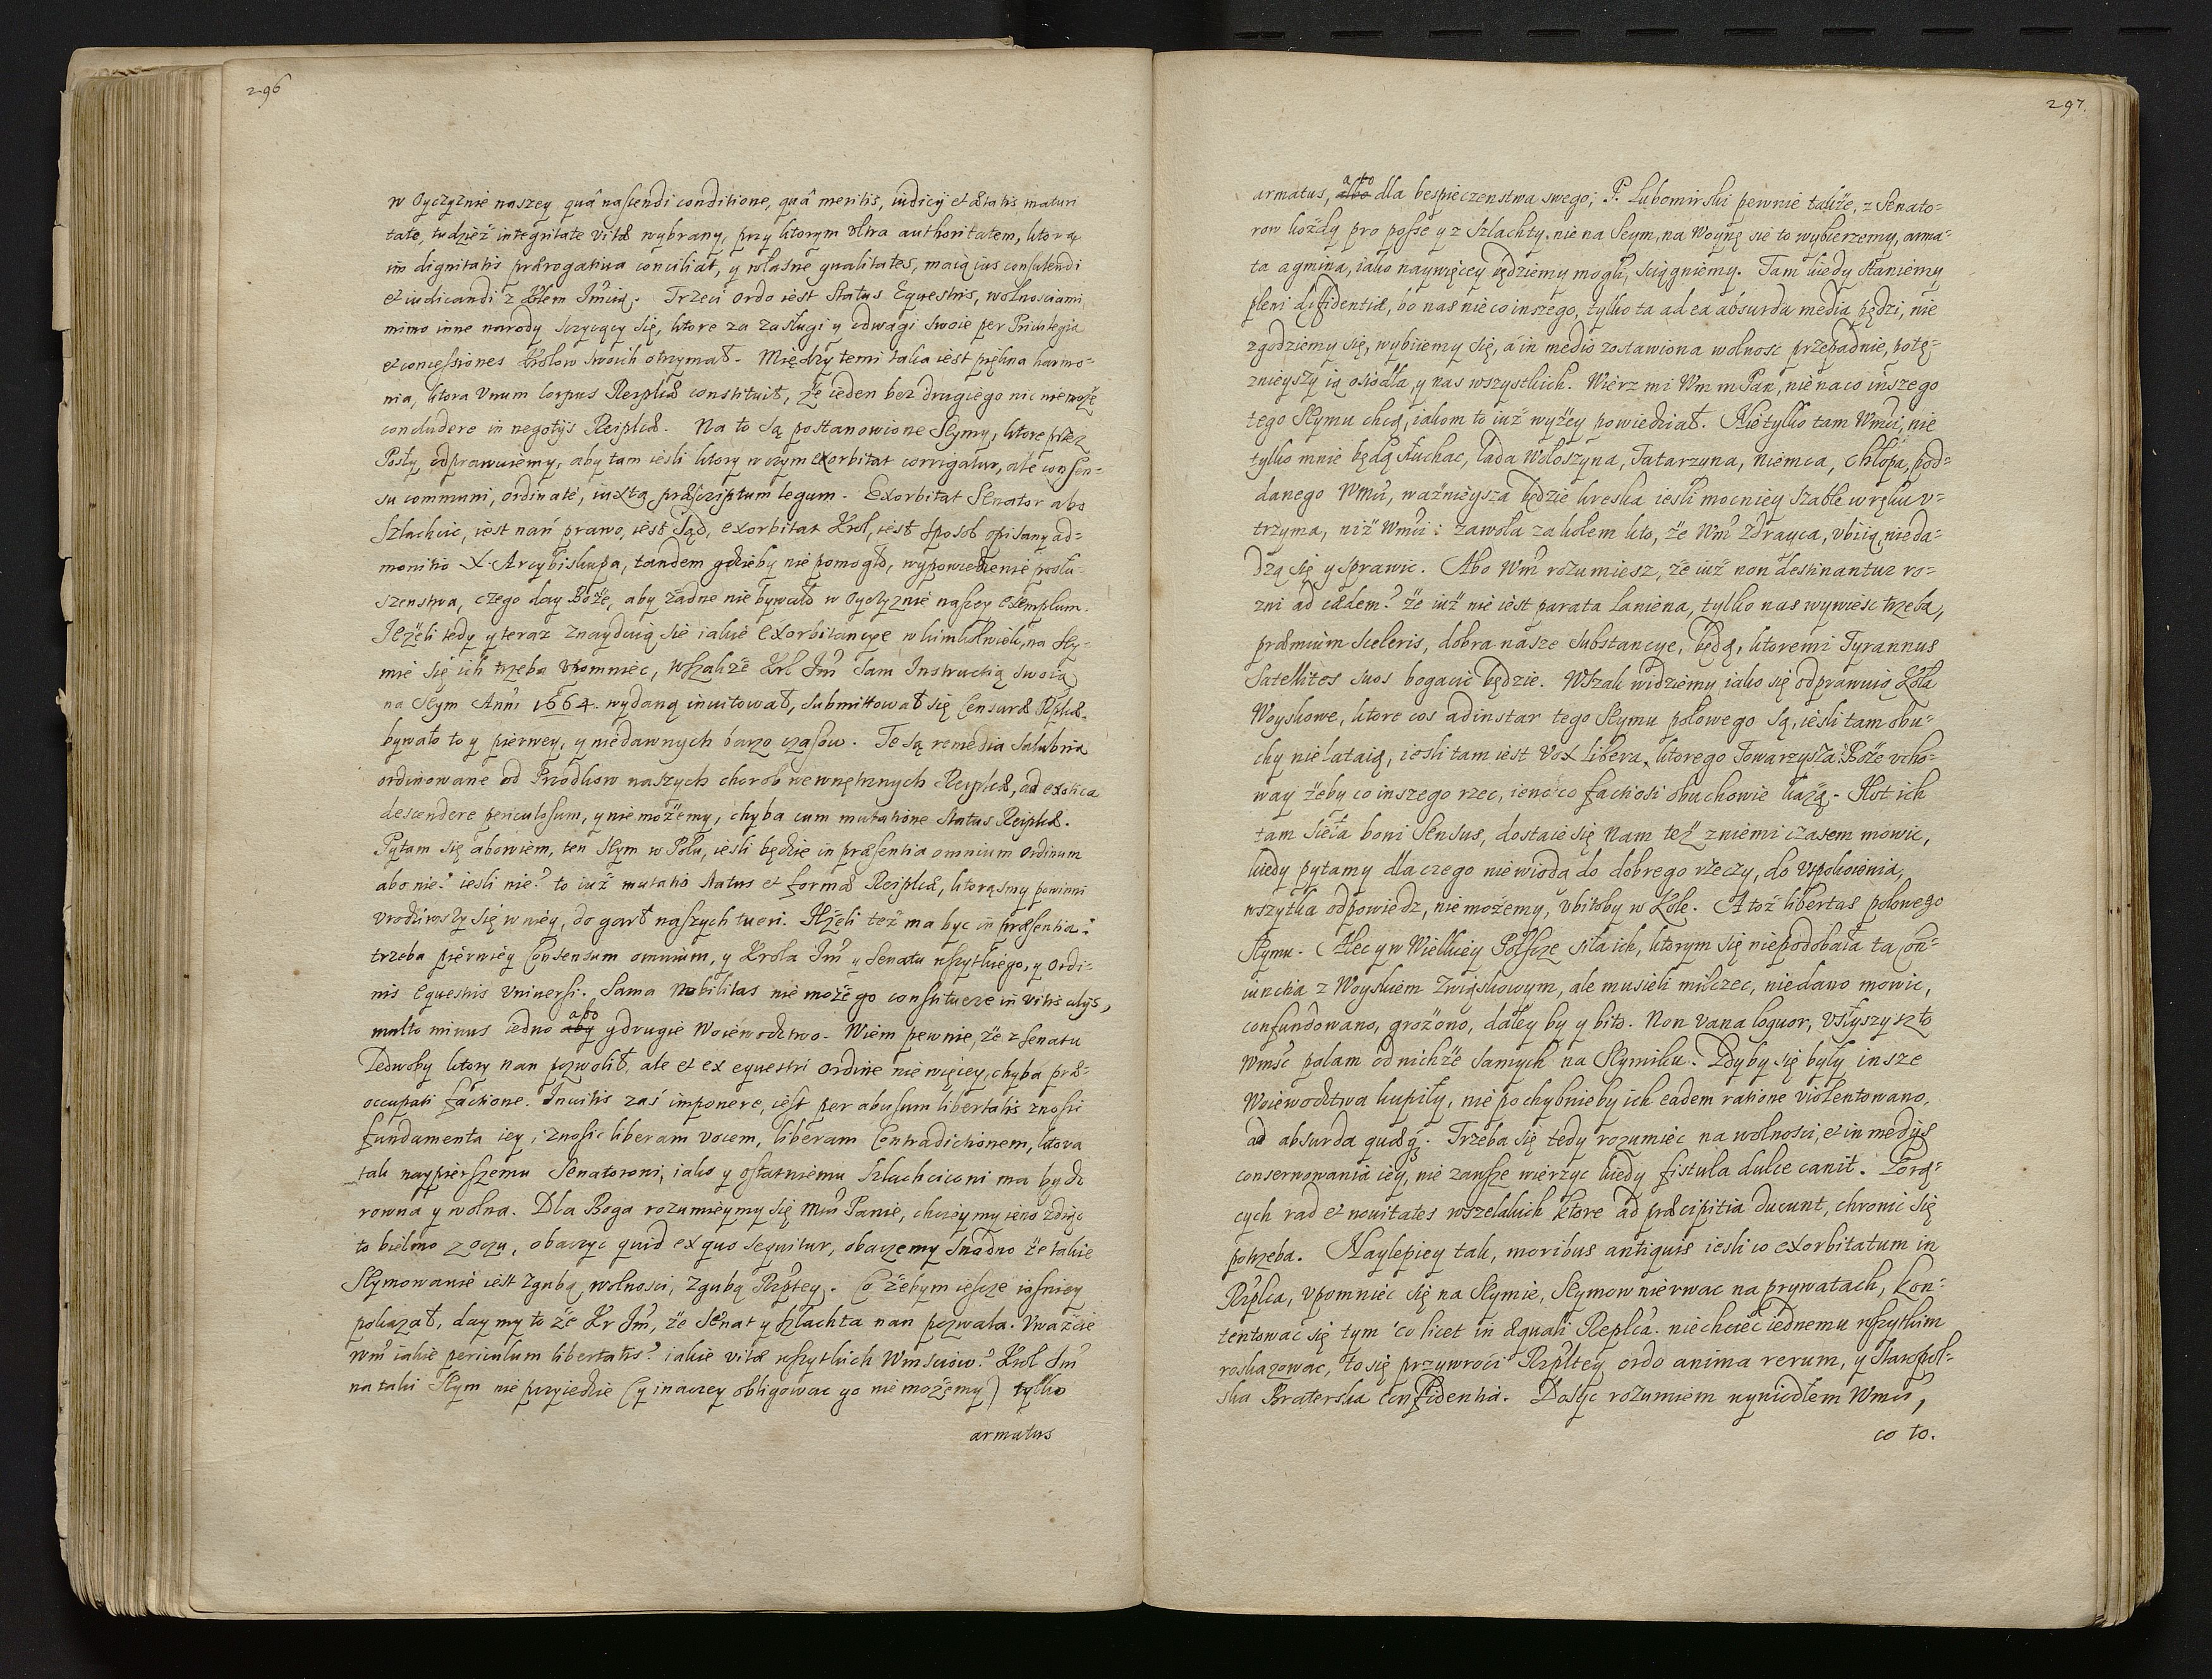 296
w Oyczyznie naszey quâ nascendi conditione, quâ meritis, iudicij et ætatis maturi
tate, tudzież integritate vitæ wybrany, przy ktorym vltra authoritatem, ktorą
im dignitatis prærogatiua conciliat, y własne qualitates, maią ius consulendi
et iudicandi z Krlem Jmcią. Trzeci ordo iest Status Equestris, wolnosciami
mimo inne narody szczycący się, ktore za zasługi y odwagi swoie per Priuilegia
et concessiones Krolow swoich otrzymał. Między temi taka iest piękna harmo=
nia, ktora Vnum Corpus Reiplcæ constituit, że ieden bez drugiego nic nie może
concludere in negotijs Reiplcæ. Na to są postanowione Seymy, ktore przez
Posły odprawuiemy, aby tam iesli ktory w czym exorbitat corrigatur, ale consen=
su communi, ordinatè, iuxta præscriptum legum. Exorbitat Senator abo
Szlachcic, iest nań prawo, iest sąd, exorbitat Krol, iest sposob opisany ad=
monitio X. Arcybiskupa, tandem gdzieby nie pomogło, wypowiedzenie posłu=
szenstwa, czego day Boże, aby żadne nie bywało w Oyczyznie naszey exemplum.
Jeżeli tedy y teraz znayduią się iakie exorbitancye w kimkolwiek, na Sey=
mie się ich trzeba vpomniec, wszakże Krl Jm̃ sam Instructią swoią
na Seym Anni 1664. wydaną inuitował, submittował się Censuræ Rplcæ.
bywało to y pierwey, y niedawnych barzo czasow. Te są remedia salubria
ordinowane od Przodkow naszych chorob wewnętrznych Reiplcæ, ad exotica
descendere periculosum, y nie możemy, chyba cum mutatione status Reiplcæ.
Pytam się abowiem, ten Seym w Polu, iesli będzie in præsentia omnium Ordinum
abo nie? iesli nie? to iuż mutatio status et formæ Reiplcæ, ktorąsmy powinni
vrodziwszy się w niey, do gardł naszych tueri. Jeżeli też ma byc in præsentia:
trzeba pierwiey Consensum omnium, y Krola Jm̃ y Senatu wszytkiego, y Ordi=
nis Equestris Vniuersi. Sama Nobilitas nie może go constituere in vitis alijs,
multo minus iedno aby abo y drugie Woiewodztwo. Wiem pewnie, że z Senatu
Ledwoby ktory nan pozwolił, ale et ex equestri Ordine nie więcey, chyba præ=
occupati factione. Inuitis zaś imponere, iest per abusum libertatis znosic
fundamenta iey, znosic liberam vocem, liberam Contradictionem, ktora
tak naypierszemu Senatorowi, iako y ostatniemu Szlachcicowi ma bydz
rowna y wolna. Dla Boga rozumieymy się Mw̃ Panie, chcieymy ieno zdiąc
to bielmo z oczu, obaczyc quid ex quo sequitur, obaczemy snadno że takie
Seymowanie iest zgubą wolnosci, zgubą Rzptey. Co żebym iescze iasniey
pokazał, daymy to że Kr Jm̃, że Senat y szlachta nan pozwala. Vważcie
Wm̃ iakie periculum libertatis? iakie vitæ wszytkich Wmsciow? Krol Jm̃
na taki Seym nie przyiedzie (y inaczey obligowac go nie możemy) tylko
armatus
297.
armatus, albo abo dla bespieczenstwa swego; P. Lubomirski pewnie także, z Senato=
row każdy pro posse y z Szlachty. nie na Seym, na Woynę się to wybierzemy, arma=
ta agmina, iako naywięcey będziemy mogli, sciągniemy. Tam kiedy staniemy
pleni diffidentiæ, bo nas nie co inszego, tylko ta ad ea absurda media pędzi, nie
zgodziemy się, wybiiemy się, á in medio zostawiona wolnosc przepadnie, potę=
znieyszy ią osiodła, y nas wszystkich. Wierz mi Wm m Pan, nie na co inszego
tego Seymu chcą, iakom to iuż wyżey powiedział. Nie tylko tam Wmci, nie
tylko mnie będą słuchac, lada Wołoszyna, Tatarzyna, Niemca, Chłopa, pod=
danego Wmci, ważnieysza będzie kreska iesli mocniey szable w ręku v=
trzyma, niż Wmci: zawoła za kołem kto, że Wm̃ zdrayca, vbiią, nie da=
dzą się y sprawic. Abo Wm̃ rozumiesz, że iuż non destinantur vo=
zni ad cædem? że iuż nie iest parata Laniena, tylko nas wywiesc trzeba,
præmium sceleris, dobra nasze substancye, będą, ktoremi Tyrannus
Satellites suos bogacic będzie. Wszak widziemy iako się odprawuią Koła
Woyskowe, ktore cos ad instar tego Seymu polowego są, iesli tam obu=
chy nie lataią, iesli tam iest Vox libera, ktorego Towarzysza? Boże vcho=
way żeby co inszego rzec, ieno co factiosi obuchowie każą. Jest ich
tam siela boni sensus, dostaie się nam też z niemi czasem mowic,
kiedy pytamy dla czego nie wioda do dobrego rzeczy, do vspokoienia,
wszytka odpowiedz, nie możemy, vbitoby w Kole. A toż libertas polowego
Seymu. Alec y w Wielkiey Polscze siła ich, ktorym się nie podobała ta Con=
iunctia z Woyskiem Związkowym, ale musieli milczec, nie dano mowic,
confundowano, grożono, daley by y bito. Non vana loquor, vsłyszysz to
Wmsc palam od nichże samych na Seymiku. Gdyby się były insze
Woiewodztwa kupiły, nie pochybnieby ich eadem ratione violentowano,
ad absurda quæq;. Trzeba się tedy rozumiec na wolnosci, et in medijs
conserwowania iey, nie zawsze wierzyc kiedy fistula dulce canit. Gorą=
cych rad et nouitates wszelakich ktore ad præcipitia ducunt, chronic się
potrzeba. Naylepiey tak, moribus antiquis iesli co exorbitatum in
Rzplca, vpomniec się na Seymie, Seymow nie rwac na prywatach, kon=
tentowac się tym co licet in æquali Replca. nie chciec iednemu wszytkim
roskazowac, to się przywroci Rzpltey ordo anima rerum, y staropol=
ska Braterska confidentia. Dosyc rozumiem wywiodłem Wmci,
co to.